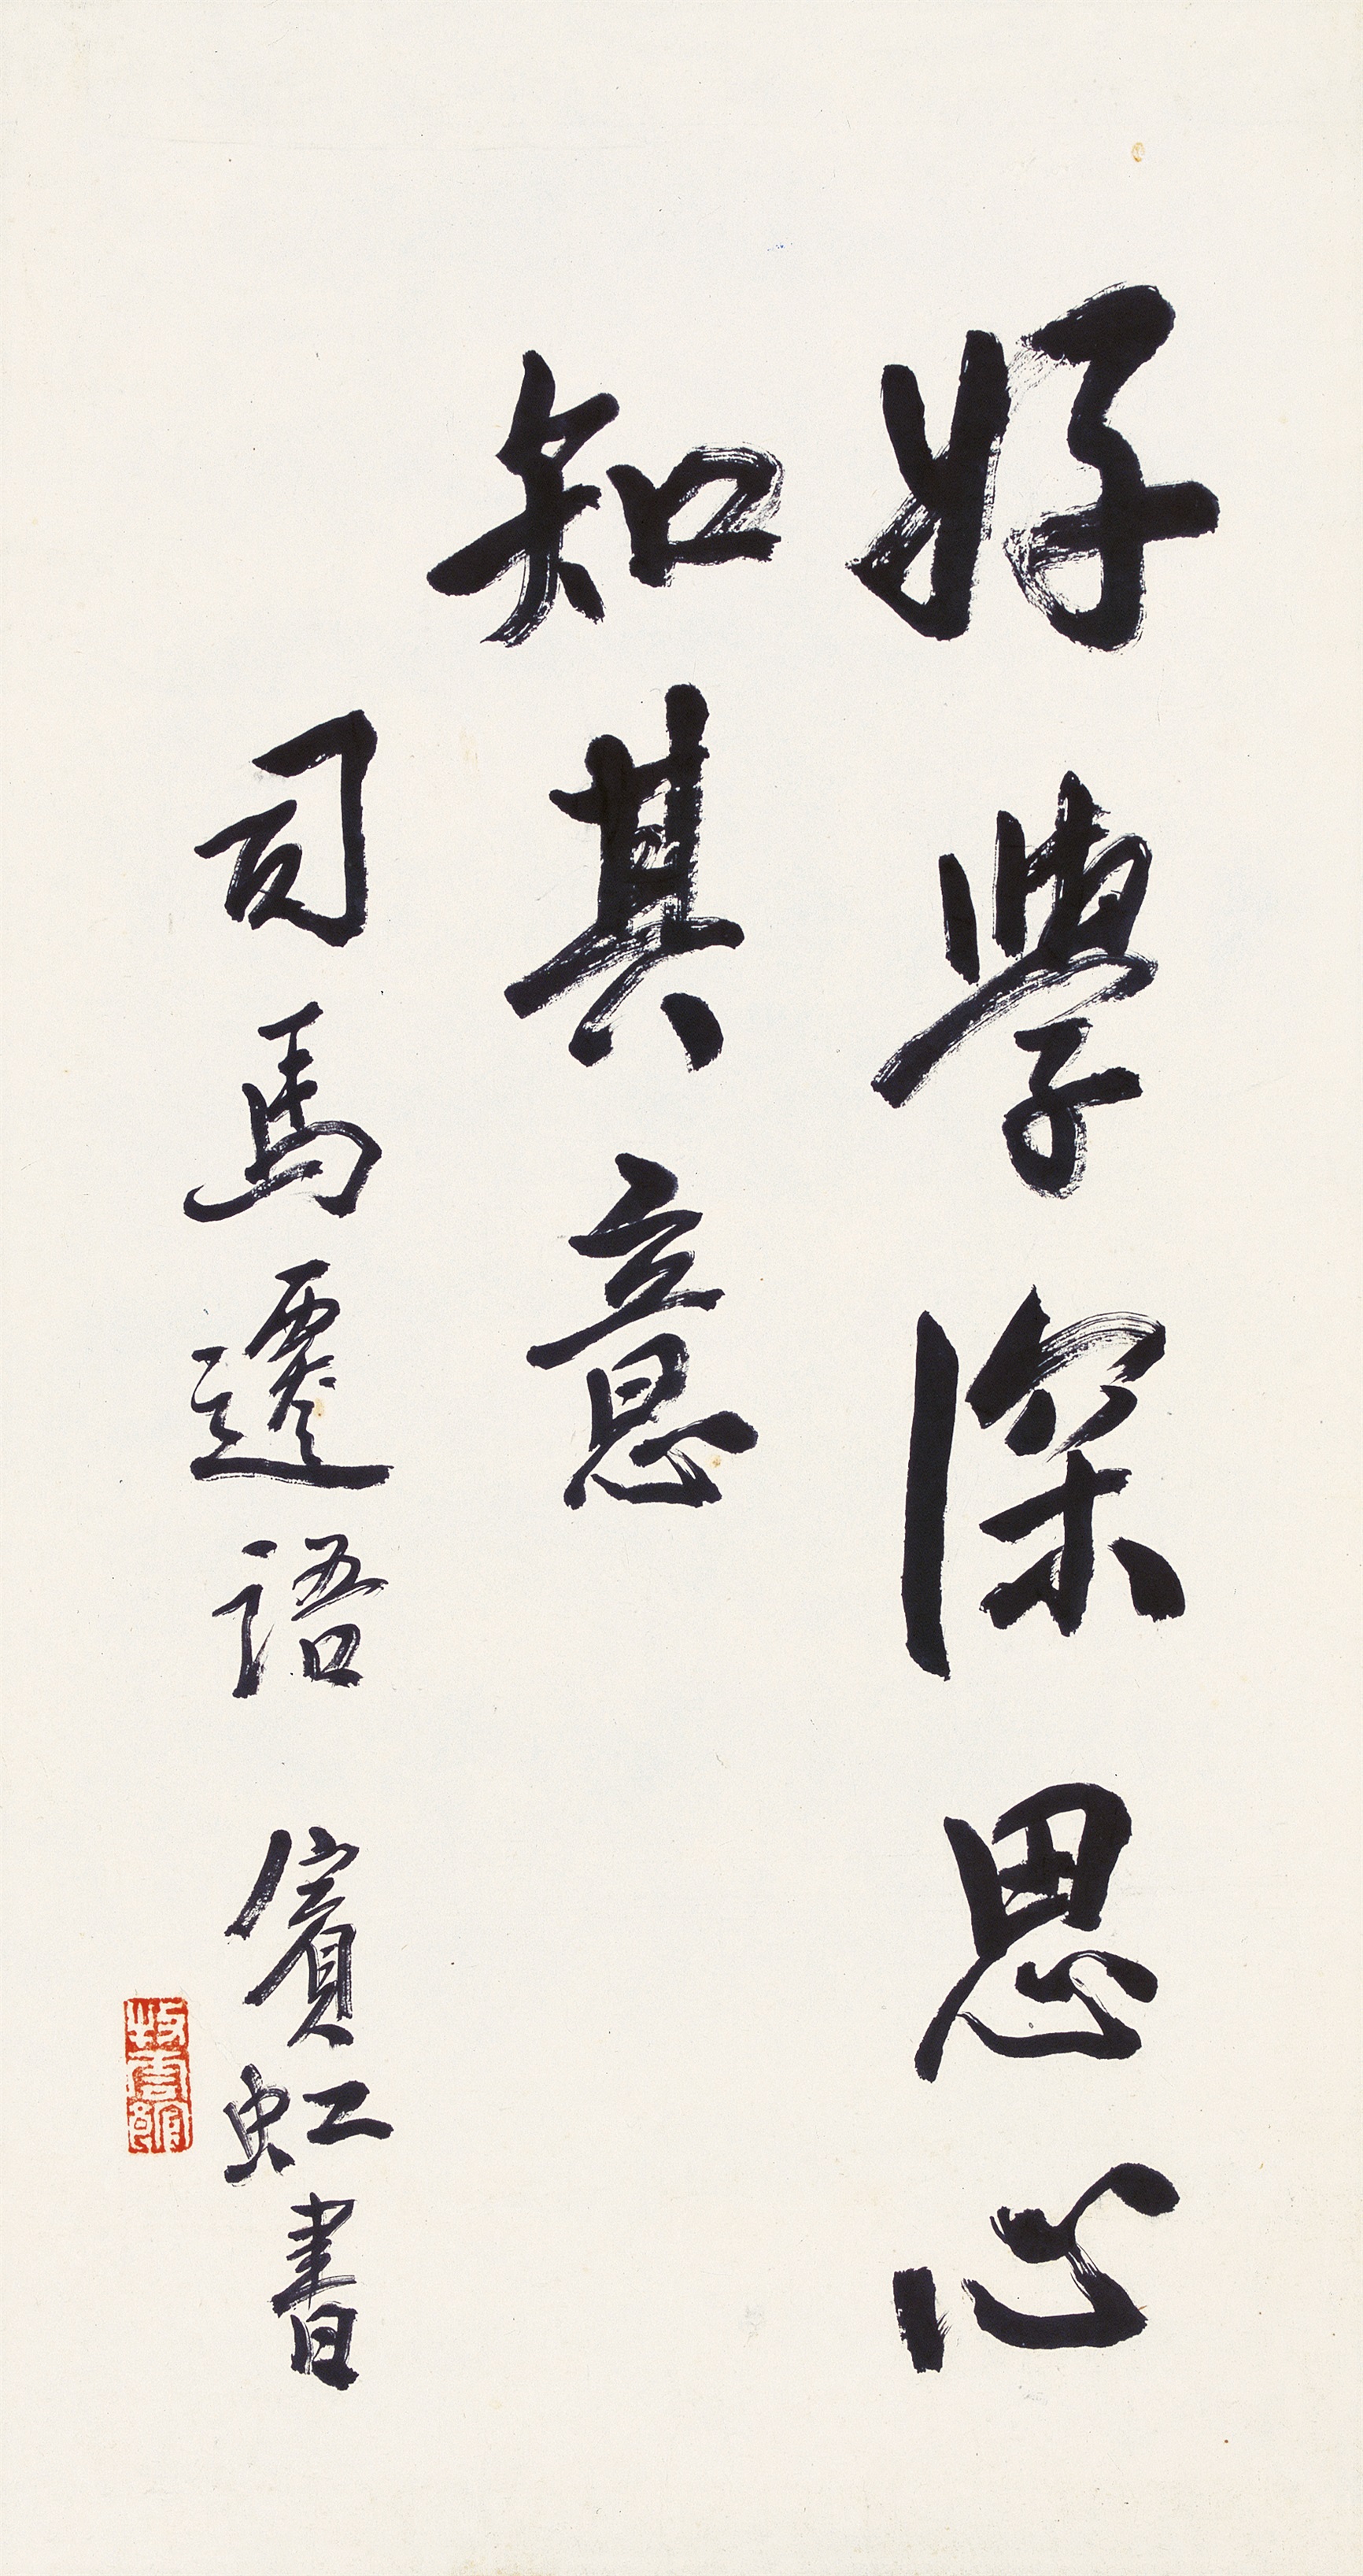 好學深思心
知其意
司馬遷語 賓虹書